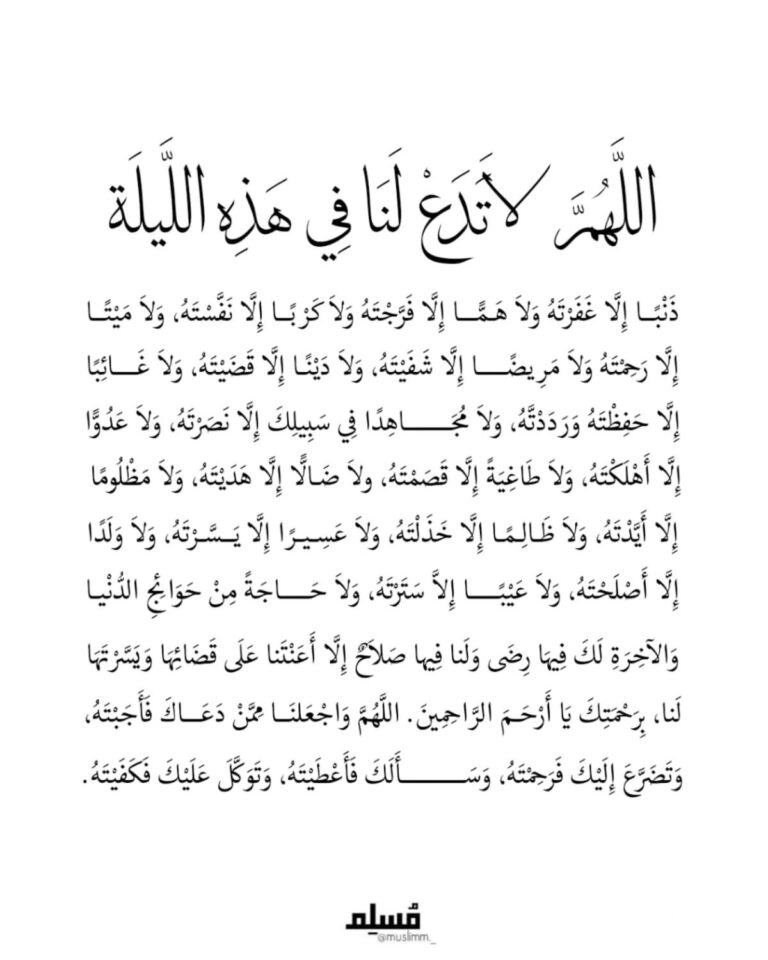 اللَّهُمَّ لاَ تَدَعْ لَنَا فِي هَذِهِ اللَّيلَة
ذَنْبًا إِلَّا غَفَرْتَهُ وَلاَ هَمًّا إِلَّا فَرَّجْتَهُ وَلاَ كَرْبًا إِلَّا نَفَّسْتَهُ، وَلاَ مَيْتًا
إِلَّا رَحِمْتَهُ وَلاَ مَرِيضًا إِلَّا شَفَيْتَهُ، وَلاَ دَيْنًا إِلَّا قَضَيْتَهُ، وَلاَ غَائِبًا
إِلَّا حَفِظْتَهُ وَرَدَدْتَّهُ، وَلاَ مُجَاهِدًا فِي سَبِيلِكَ إِلَّا نَصَرْتَهُ، وَلاَ عَدُوًّا
إِلَّا أَهْلَكْتَهُ، وَلاَ طَاغِيَةً إِلَّا قَصَمْتَهُ، ولاَ ضَالًّا إِلَّا هَدَيْتَهُ، وَلاَ مَظْلُومًا
إِلَّا أَيَّدْتَهُ، وَلاَ ظَالِمًا إِلَّا خَذَلْتَهُ، وَلاَ عَسِيرًا إِلَّا يَسَّرْتَهُ، وَلاَ وَلَدًا
إِلَّا أَصْلَحْتَهُ، وَلاَ عَيْبًا إِلاَّ سَتَرْتَهُ، وَلاَ حَاجَةً مِنْ حَوَائِجِ الدُّنْيا
وَالآخِرَةِ لَكَ فِيهَا رِضَى وَلَنا فِيها صَلاَحٌ إِلَّا أَعَنْتَنا عَلَى قَضَائِهَا وَيَسَّرْتَهَا
لَنا، بِرَحْمَتِكَ يَا أَرْحَمَ الرَّاحِمِينَ. اللهُمَّ وَاجْعَلنَا مِمَّنْ دَعَاكَ فَأَجَبْتَهُ،
وَتَضَرَّعَ إِلَيْكَ فَرَحِمْتَهُ، وَسَأَلَكَ فَأَعْطَيْتَهُ، وَتَوَكَّلَ عَلَيْكَ فَكَفَيْتَهُ.
مُسلِم
@muslimm._